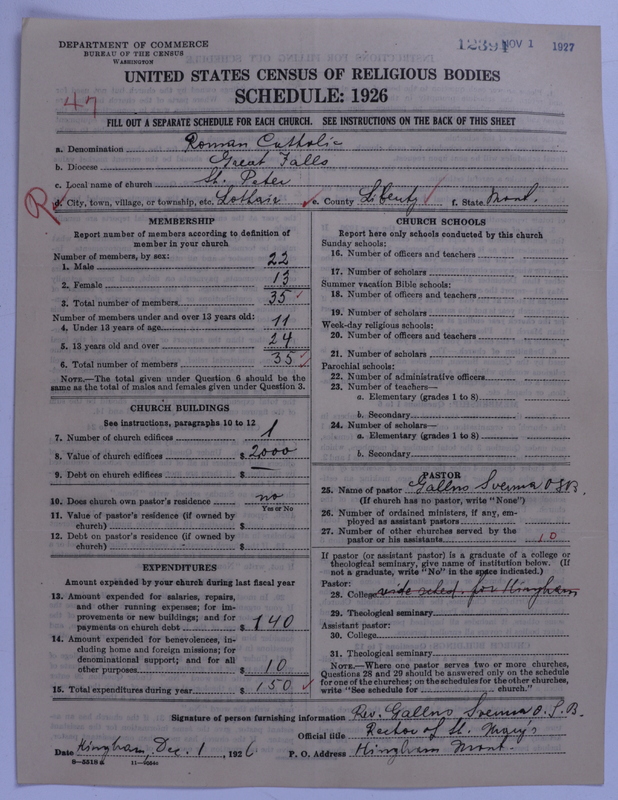 DEPARTMENT OF COMMERCE
BUREAU OF THE CENSUS
WASHINGTON
12394 NOV 1 1927
UNITED STATES CENSUS OF RELIGIOUS BODIES
SCHEDULE: 1926
47
FILL OUT A SEPARATE SCHEDULE FOR EACH CHURCH. SEE INSTRUCTIONS ON THE BACK OF THIS SHEET
a. Denomination Roman Catholic
b. Diocese Great Falls
c. Local name of church St. Peter
R
d. City, town, village, or township, etc. Lothair e. County Liberty f. State Mont.
MEMBERSHIP
Report number of members according to definition of
member in your church
Number of members, by sex:
1. Male 22
2. Female 13
3. Total number of members 35
Number of members under and over 13 years old:
4. Under 13 years of age 11
5. 13 years old and over 24
6. Total number of members 35
NOTE.—The total given under Question 6 should be the
same as the total of males and females given under Question 3.
CHURCH BUILDINGS
See instructions, paragraphs 10 to 12
7. Number of church edifices 1
8. Value of church edifices $ 2000
9. Debt on church edifices $ —
10. Does church own pastor's residence no
Yes or No
11. Value of pastor's residence (if owned by
church) $
12. Debt on pastor's residence (if owned by
church) $
EXPENDITURES
Amount expended by your church during last fiscal year
13. Amount expended for salaries, repairs,
and other running expenses; for im-
provements or new buildings; and for
payments on church debt $ 140
14. Amount expended for benevolences, in-
cluding home and foreign missions; for
denominational support; and for all
other purposes $ 10
15. Total expenditures during year $ 150
CHURCH SCHOOLS
Report here only schools conducted by this church
Sunday schools:
16. Number of officers and teachers
17. Number of scholars
Summer vacation Bible schools:
18. Number of officers and teachers
19. Number of scholars
Week-day religious schools:
20. Number of officers and teachers
21. Number of scholars
Parochial schools:
22. Number of administrative officers
23. Number of teachers—
a. Elementary (grades 1 to 8)
b. Secondary
24. Number of scholars—
a. Elementary (grades 1 to 8)
b. Secondary
PASTOR
25. Name of pastor Gallus O.S.B.
(If church has no pastor, write "None")
26. Number of ordained ministers, if any, em-
ployed as assistant pastors
27. Number of other churches served by the
pastor or his assistants 10
If pastor (or assistant pastor) is a graduate of a college or
theological seminary, give name of institution below. (If
not a graduate, write "No" in the space indicated.)
Pastor:
28. College vide sched. for Hingham
29. Theological seminary
Assistant pastor:
30. College
31. Theological seminary
NOTE.—Where one pastor serves two or more churches,
Questions 28 and 29 should be answered only on the schedule
for one of the churches; on the schedules for the other churches,
write "See schedule for church."
Signature of person furnishing information Rev. Gallus O.S.B.
Official title Rector of St. Mary's
Date Hingham, Dec. 1, 1926 P. O. Address Hingham Mont.